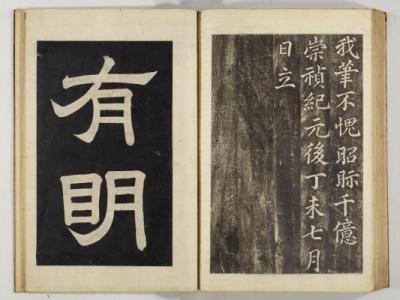 我筆不愧昭眎千億
崇禎紀元後丁未七月
日立
有明